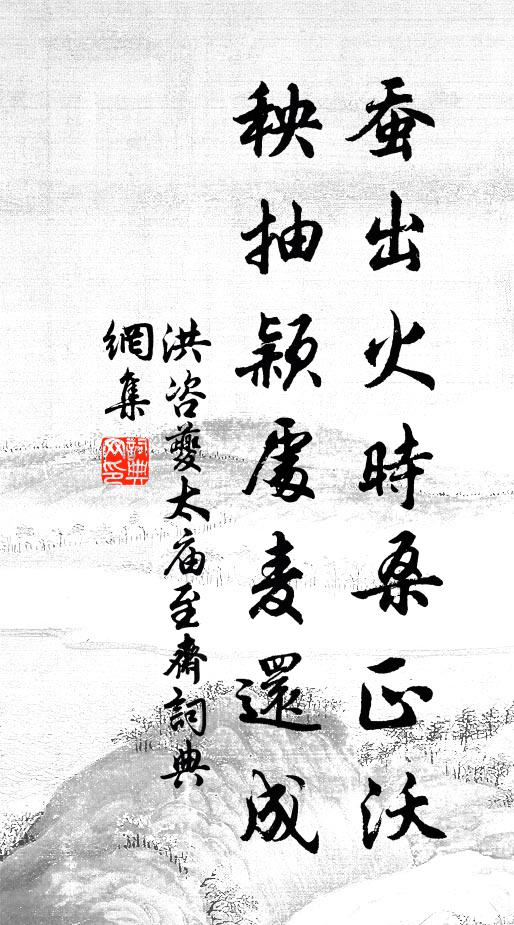 蚕出火時桑正沃
秧抽穎處麦還成
洪咨夔太庙至齋詞典
網集
詞典網印